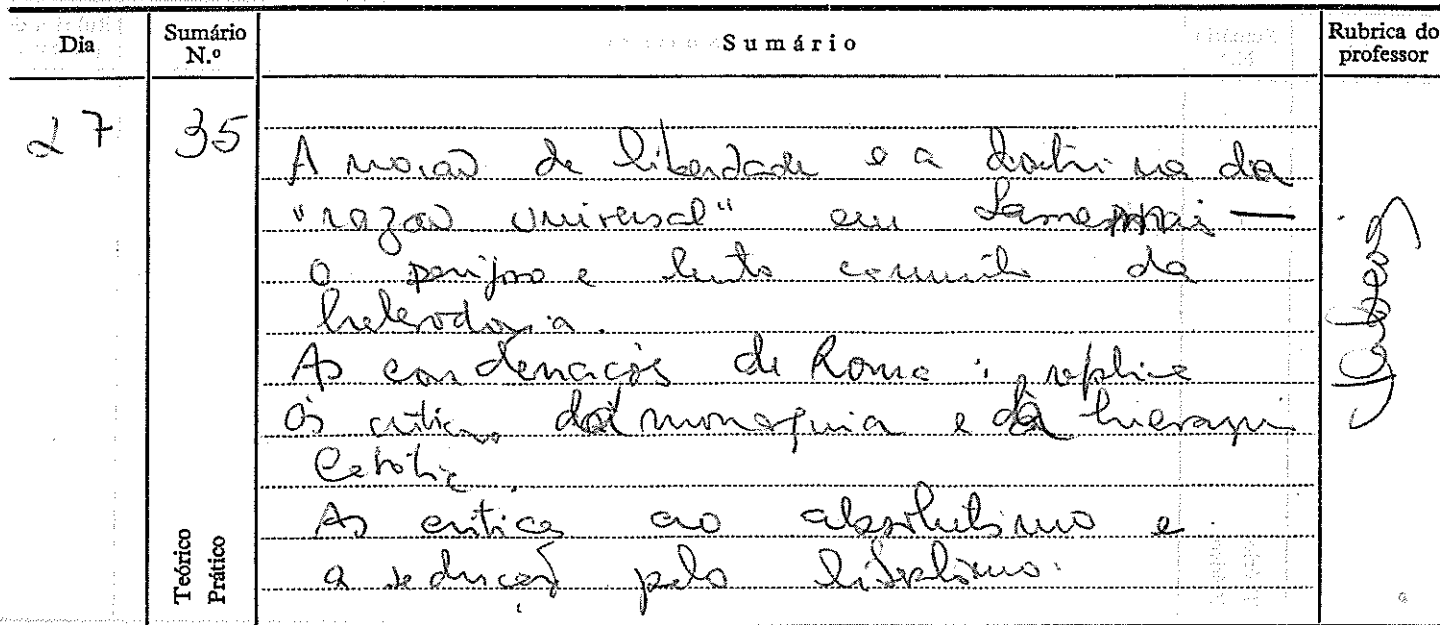 Dia
Sumário N.º
Sumário
Rubrica do professor
27
35
A noção de liberdade e a doutrina da
"razão universal" em Lamennais —
o perigoso e lento caminho da
heterodoxia.
As condenações de Roma: réplica
às críticas da monarquia e da hierarquia
Católica.
As críticas ao absolutismo e
a sedução pelo liberalismo.
Teórico
Prático